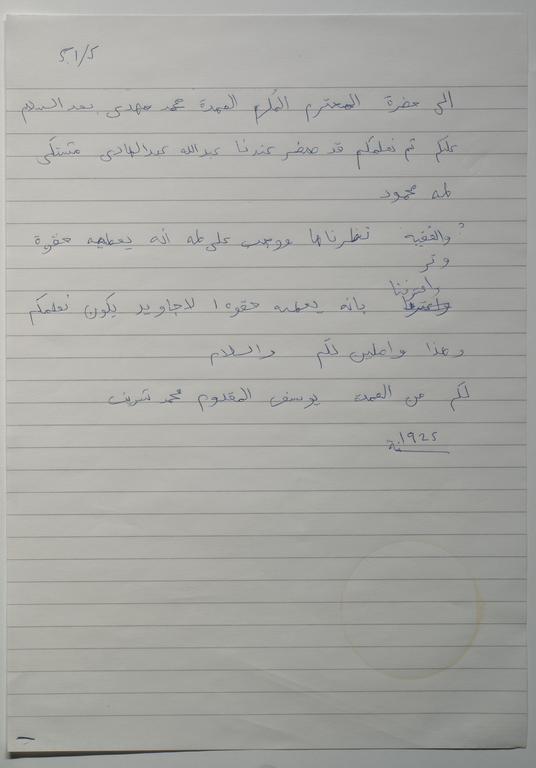 51/5
الى حضرة المحترم المكرم العمدة محمد مهدى بعد السلام
عليكم ثم نعلمكم قد حضر عندنا عبدالله عبدالهادى متشكى
طه محمود
والقضية نظرناها ووجب على طه أنه يعطيه حقوة
وتر
واعترفنا
بانه يعطيه حقوه لاجاويد يكون نعلمكم
وهذا واصلين لكم والسلام
لكم من العمدة يوسف المقدوم محمد شريف
سنة 1925